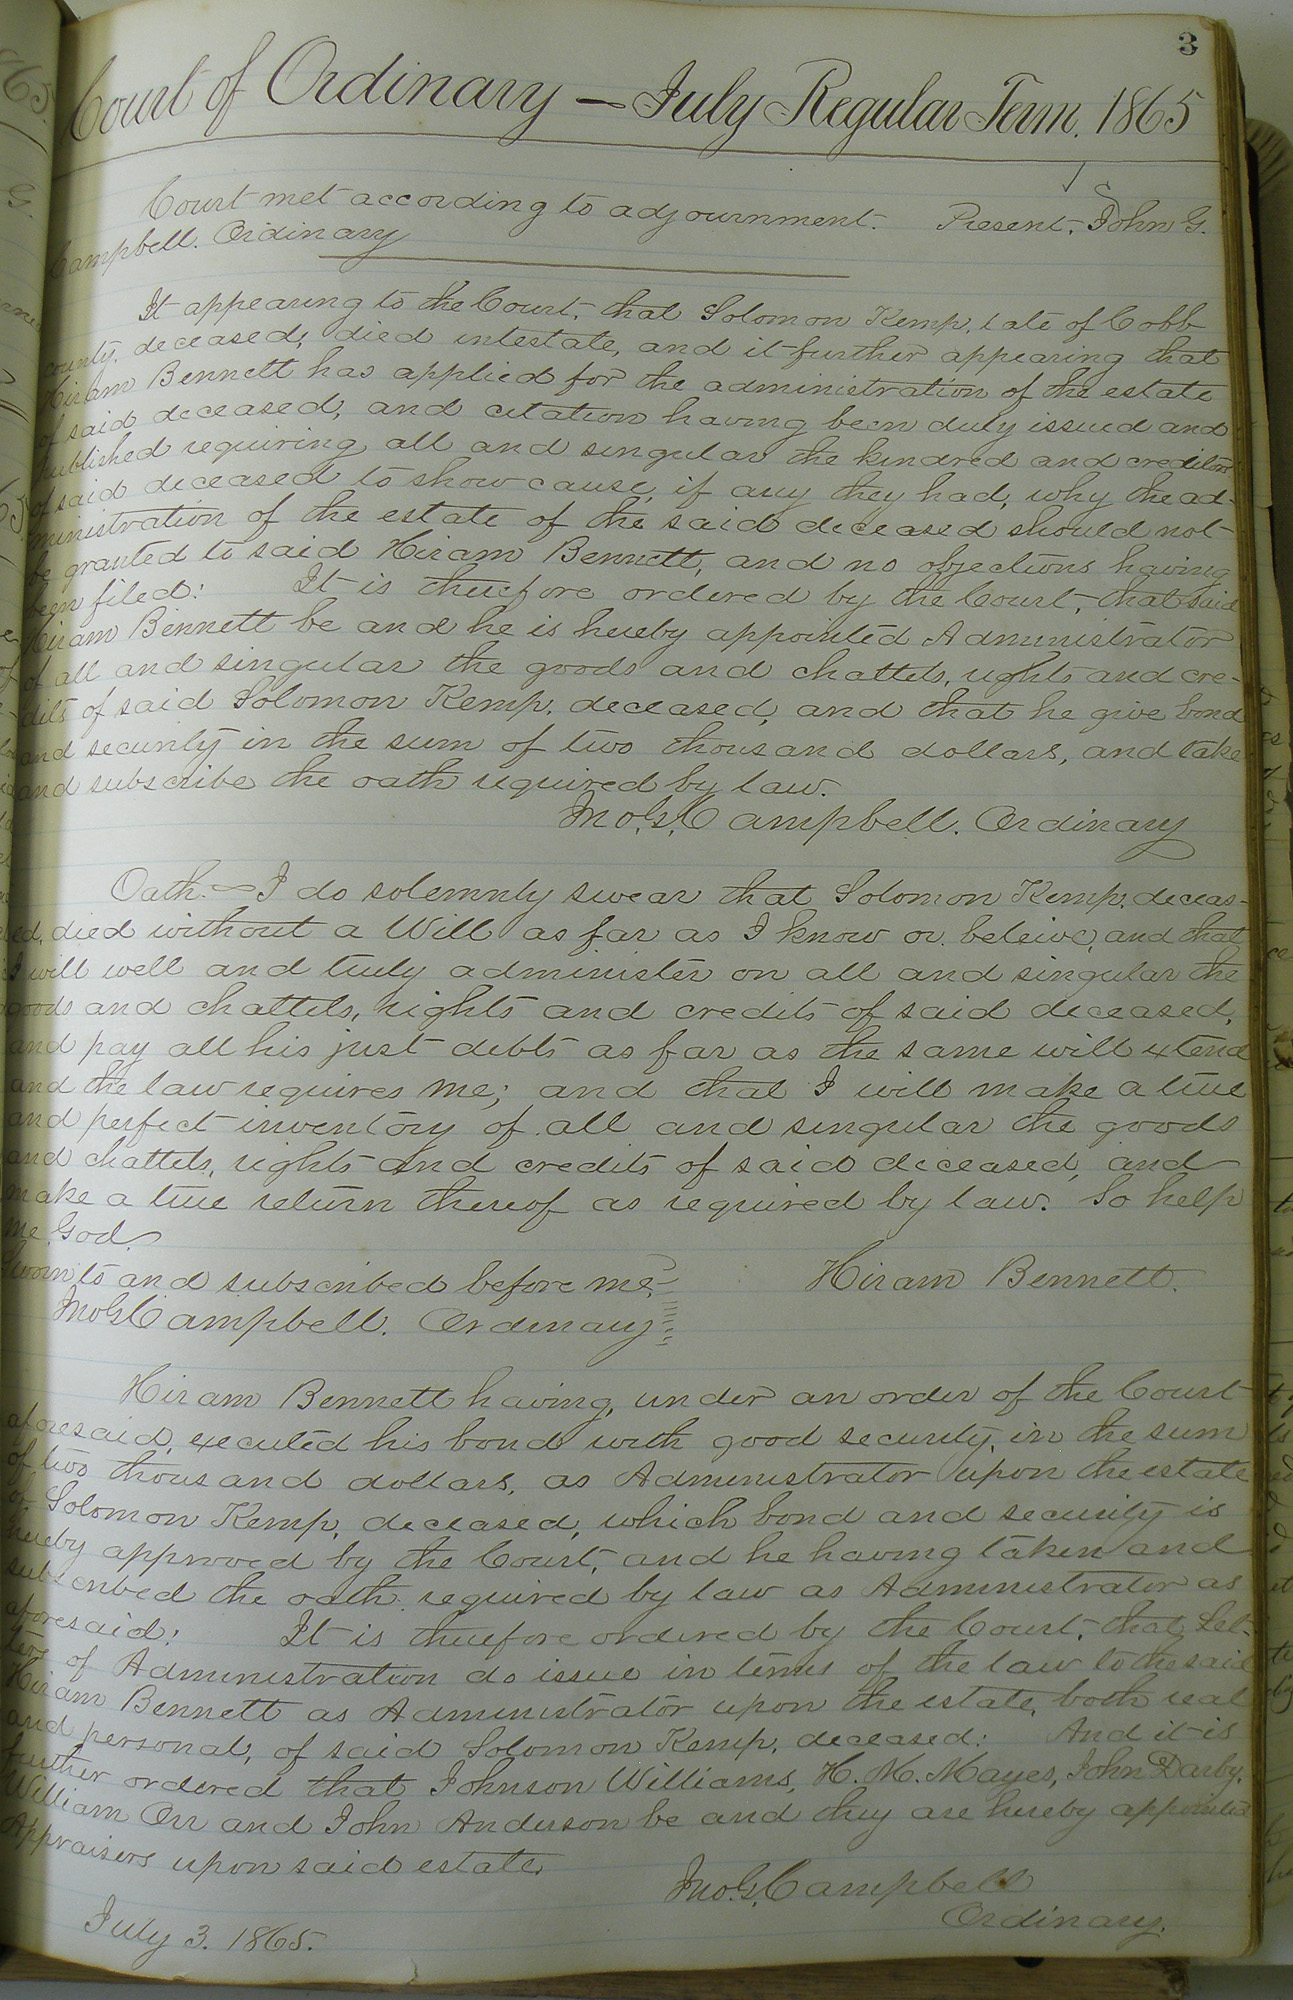 3
Court of Ordinary — July Regular Term, 1865
Court met according to adjournment. Present, John G.
Campbell. Ordinary
It appearing to the Court, that Solomon Kemp, late of Cobb
county, deceased, died intestate, and it further appearing that
Hiram Bennett has applied for the administration of the estate
of said deceased, and citation having been duly issued and
published requiring all and singular the kindred and creditors
of said deceased to show cause, if any they had, why the ad-
ministration of the estate of the said deceased should not
be granted to said Hiram Bennett, and no objections having
been filed: It is therefore ordered by the Court, that said
Hiram Bennett be and he is hereby appointed Administrator
of all and singular the goods and chattels, rights and cre-
dits of said Solomon Kemp, deceased, and that he give bond
and security in the sum of two thousand dollars, and take
and subscribe the oath required by law.
Jno. G. Campbell. Ordinary
Oath.— I do solemnly swear that Solomon Kemp, deceas-
ed, died without a Will as far as I know or beleive, and that
I will well and truly administer on all and singular the
goods and chattels, rights and credits of said deceased,
and pay all his just debts as far as the same will extend
and the law requires me; and that I will make a true
and perfect inventory of all and singular the goods
and chattels, rights and credits of said deceased, and
make a true return thereof as required by law. So help
me God.
Sworn to and subscribed before me, Hiram Bennett.
Jno G. Campbell. Ordinary
Hiram Bennett having, under an order of the Court
aforesaid, executed his bond with good security, in the sum
of two thousand dollars, as Administrator upon the estate
of Solomon Kemp, deceased, which bond and security is
hereby approved by the Court, and he having taken and
subscribed the oath required by law as Administrator as
aforesaid: It is therefore ordered by the Court, that Let-
ters of Administration do issue in terms of the law to the said
Hiram Bennett as Administrator upon the estate, both real
and personal, of said Solomon Kemp, deceased: And it is
further ordered that Johnson Williams, H. M. Mayes, John Darby,
William Orr and John Anderson be and they are hereby appointed
Appraisers upon said estate.
Jno. G. Campbell
Ordinary.
July 3. 1865.